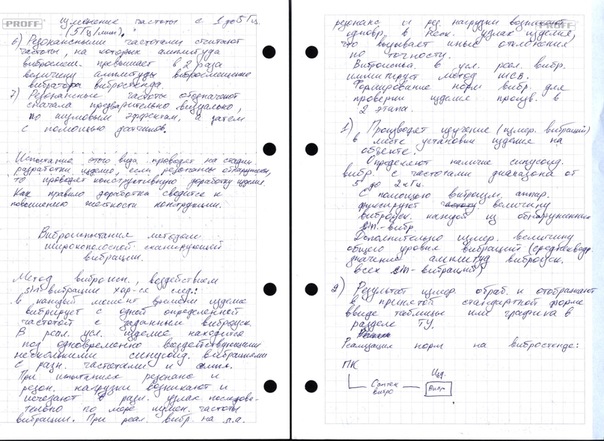 PROFF
изменение частоты с 1 до 5 Гц.
(5 Гц/мин),
6) Резонансными частотами считают
частоты, на которых амплитуда
вибросмещ. превышает в 2 раза
величину амплитуды вибросмещения
вибратора вибростенда.
7) Резонансные частоты обозначают
сначала предварительно визуально,
по шумовым эффектам, а затем
с помощью датчиков.
Испытание этого вида проводят на стадии
разработки изделия, если резонансы обнаружены,
то проводят конструктивную доработку изделия
Как правило доработка сводится к
повышению жесткости конструкции.
Виброиспытания методом
широкополосной сканирующей
вибрации.
Метод виброисп., воздействием
sin вибрации хар-ся след:
в каждый момент времени изделие
вибрирует с одной определенной
частотой с заданным виброуск.
В реал. усл. изделие находится
под одновременно воздействующими
несколькими синусоид. вибрациями
с разн. частотами и
При испытаниях резонанс и
резон. нагрузки возникают и
исчезают в разн. узлах последова-
тельно по мере измен. частоты
вибрации. При реал. вибр. на
PROFF
резонанс и рез. нагрузки возникают
одновр. в неск. узлах изделия,
что вызывает иные отклонения
по точности.
в усл. реал. вибр.
имитирует метод ШСВ.
Формирование норм вибр. для
проверки изделие произв. в
2 этапа.
1) Производят изучение (измер. вибраций)
в месте установки изделия на
объекте.
Определяют наличие синусоид.
вибр. с частотами диапазона от
5 до 2кГц.
С помощью вибрац.
фиксируют величину
виброуск. каждой из обнаруженных
sin-вибр.
Дополнительно измер. величину
общего уровня вибраций (среднеквадр.
значения амплитуд виброуск.
всех sin-вибраций)
2) Результат измер. обраб. и отображают
в принятой стандартной форме
ввиде таблицы или графика в
разделе ТУ.
Реализация норм на вибростенде:
ПК
Изд.
Синтез
вибро
Вибр